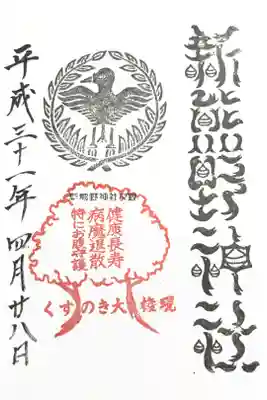 新熊野神社
健康長寿
病魔退散
特にお腹守護
くすのき大權現
平成三十一年四月廿八日